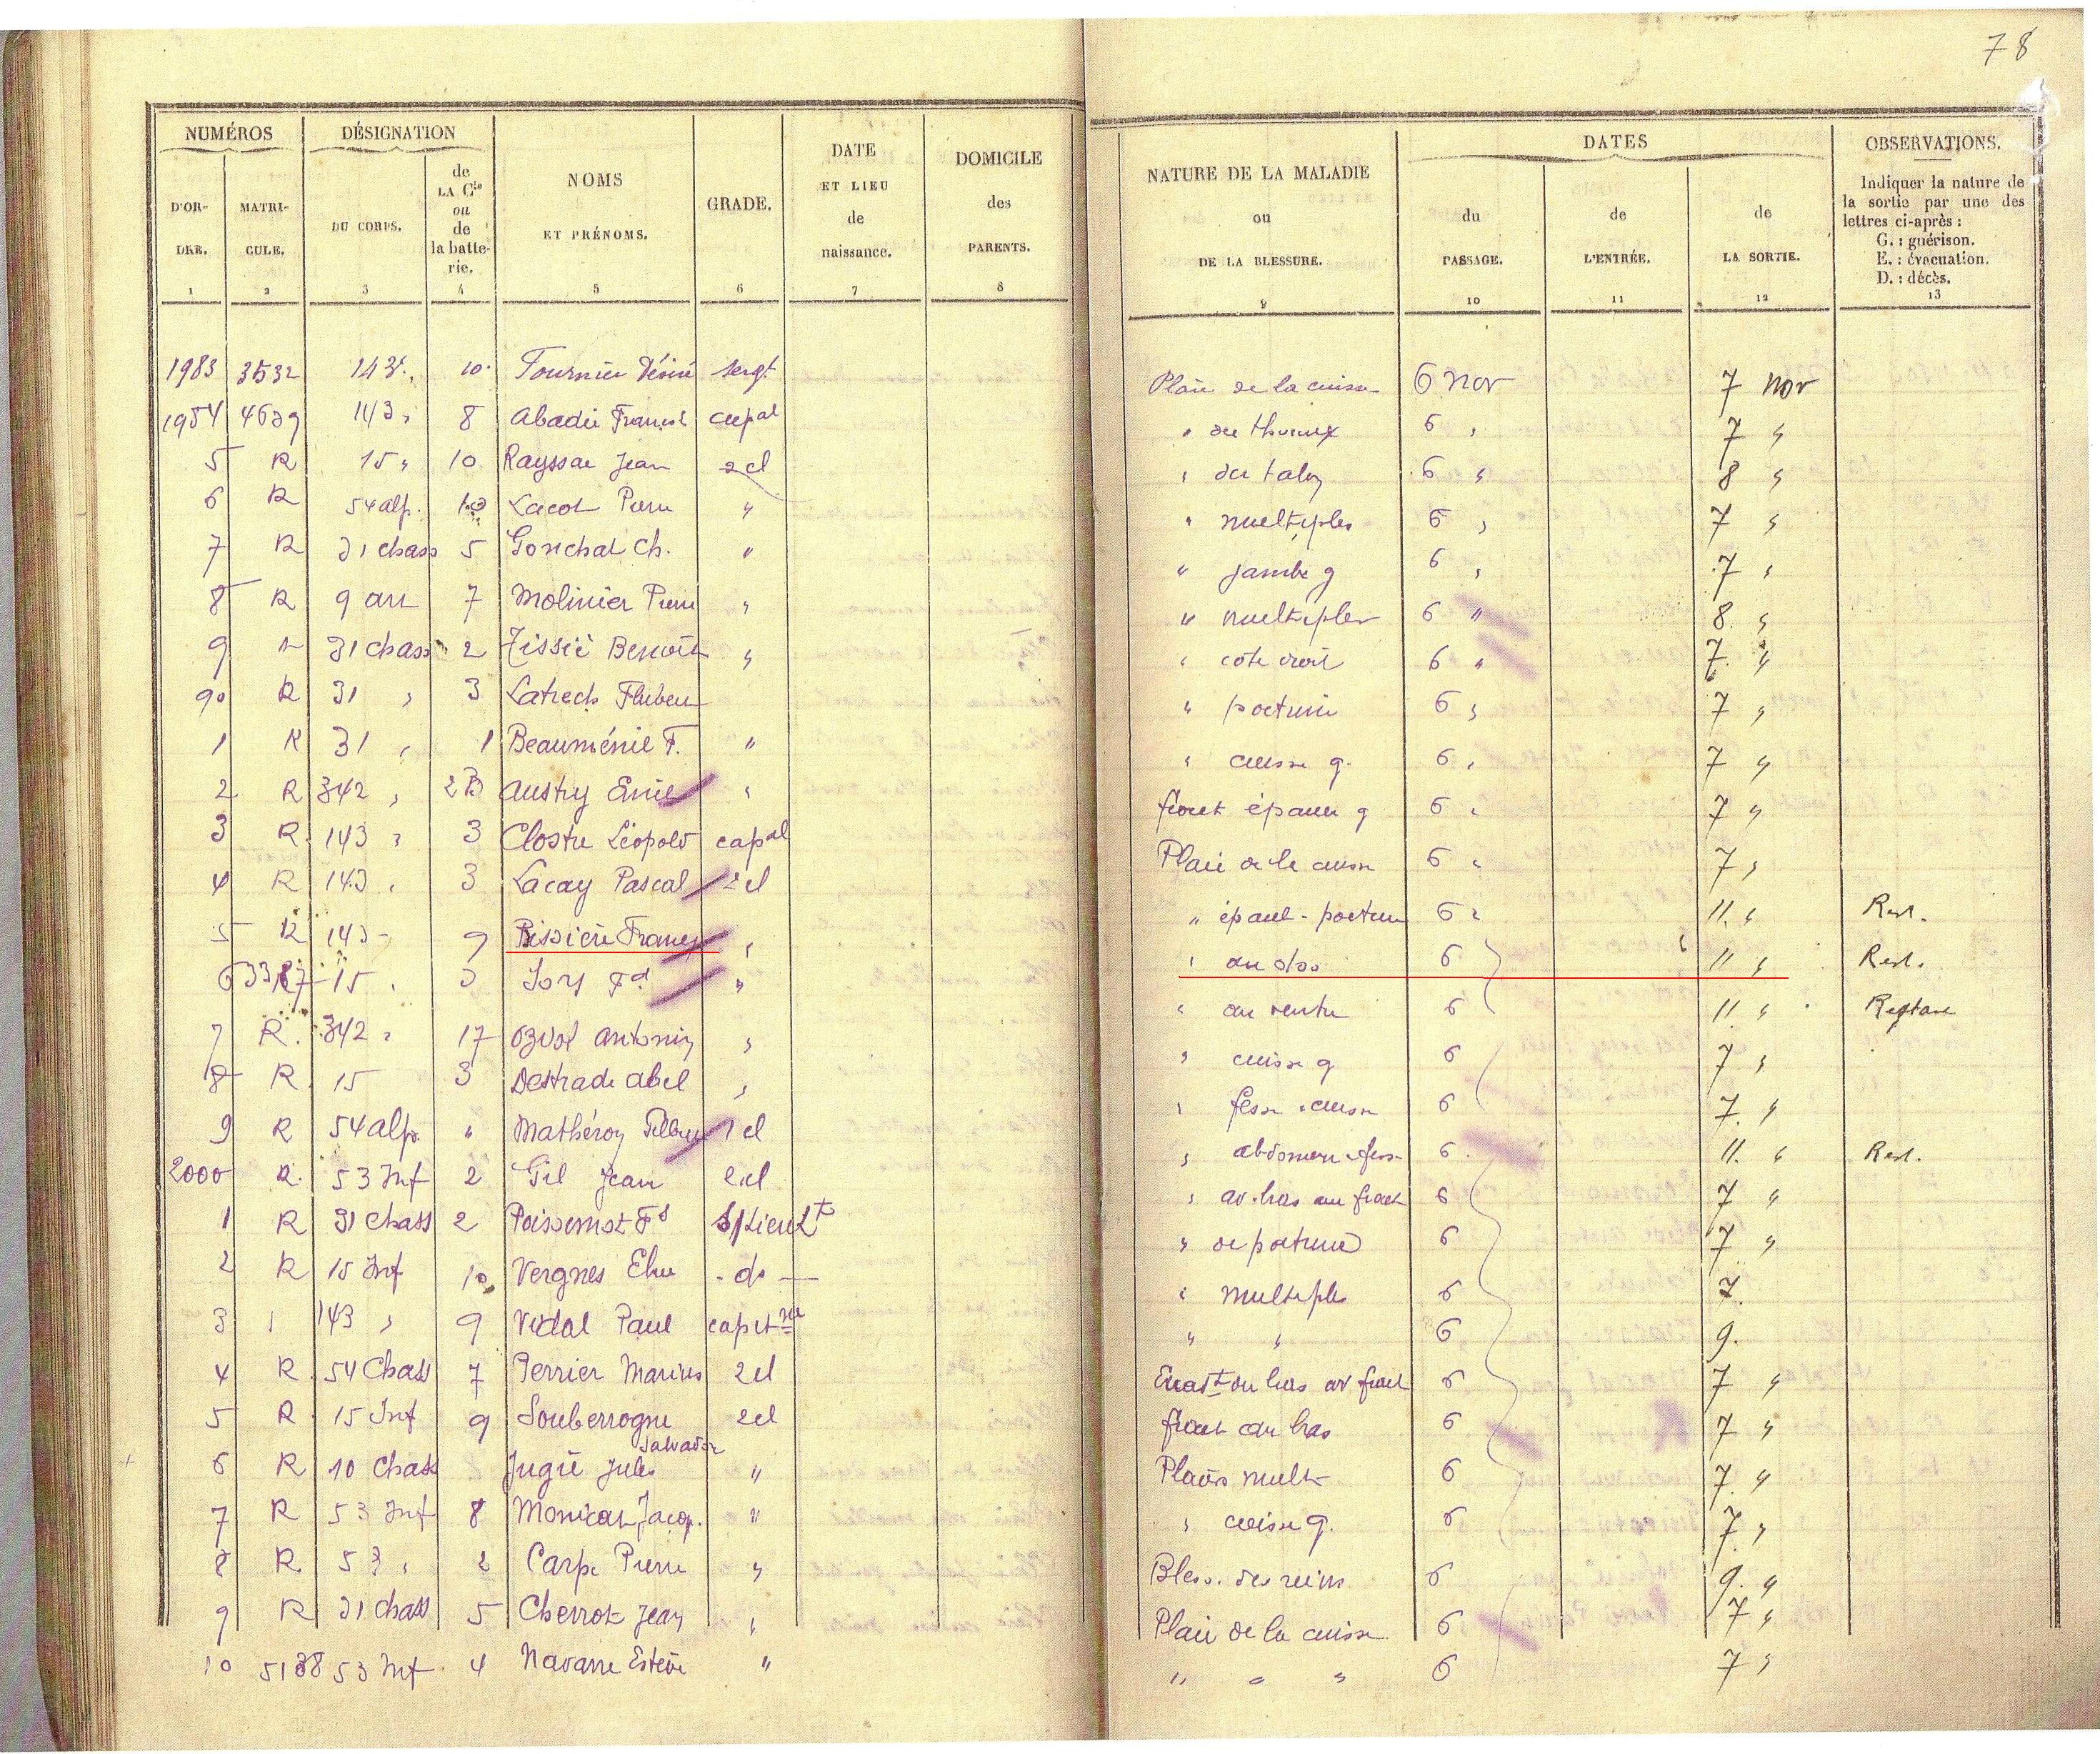 78
NUMÉROS DÉSIGNATION NOMS ET PRÉNOMS. GRADE. DATE ET LIEU de naissance. DOMICILE des PARENTS. NATURE DE LA MALADIE ou DE LA BLESSURE. DATES OBSERVATIONS.
D'OR-DRE. MATRI-CULE. DU CORPS. de LA Cie ou de la batte-rie. du PASSAGE. de L'ENTRÉE. de LA SORTIE. Indiquer la nature de la sortie par une des lettres ci-après :
G. : guérison.
E. : évacuation.
D. : décès.
1 2 3 4 5 6 7 8 9 10 11 12 13
1983 3532 143 " 10 Fournier Désiré sergt Plaie de la cuisse 6 nov 7 nov
1984 4639 143 " 8 Abadie Francis capal " du thorax 6 " 7 "
5 R 15 " 10 Rayssac Jean 2cl " du talon 6 " 8 "
6 R 54 alp. 10 Lacot Pierre " " multiples 6 " 7 "
7 R 31 chass 5 Gonichat Ch. " " jambe g 6 " 7 "
8 R 9 art 7 Molinier Pierre " " multiples 6 " 8 "
9 R 31 chass 2 Tissié Benoît " " côté droit 6 " 7 "
90 R 31 " 3 Latrech " poitrine 6 " 7 "
1 R 31 " 1 Beauménil F. " " cuisse g. 6 " 7 "
2 R 342 " 23 Austry Emile " fract épaule g 6 " 7 "
3 R 143 " 3 Clostre Léopold capal Plaie de la cuisse 6 " 7 "
4 R 143 " 3 Lacay Pascal 2cl " épaule - poitrine 6 " 11 " Rest.
5 R 143 " 9 Bissière Franç " " au dos 6 11 " Rest.
6 3387 15 " 3 Jory Fd " " au ventre 6 11 " Restant
7 R. 342 " 17 Ozvol Antonin " " cuisse g 6 7 "
8 R 15 3 Destrade Abel " " fesse cuisse 6 7 "
9 R 54 alp. " Mathéron 2cl " abdomen fess 6 11 " Rest.
2000 R. 53 Inf 2 Gil Jean 2cl " av. bras av fract 6 7 "
1 R 31 chass 2 Poissernot Fs S/Lieut " de poitrine 6 7 "
2 R 15 Inf 10 Vergnes Elie - do - " multiples 6 7.
3 " 143 " 9 Vidal Paul capitne " " 6 9.
4 R 54 Chass 7 Perrier Marius 2cl du bras av fract 6 7 "
5 R 15 Inf 9 Souberrogne Salvador 2cl fract du bras 6 7 "
6 R 10 Chass Jugie Jules " Plaies mult 6 7 "
7 R 53 Inf 8 Monicat Jacq. " " cuisse g. 6 7 "
8 R. 53 " 2 Carpe Pierre " Bless. des reins 6 9. "
9 R 31 chass 5 Cherrot Jean " Plaie de la cuisse 6 7 "
10 5188 53 Inf 4 Navarre Estève " " " " 6 7 "